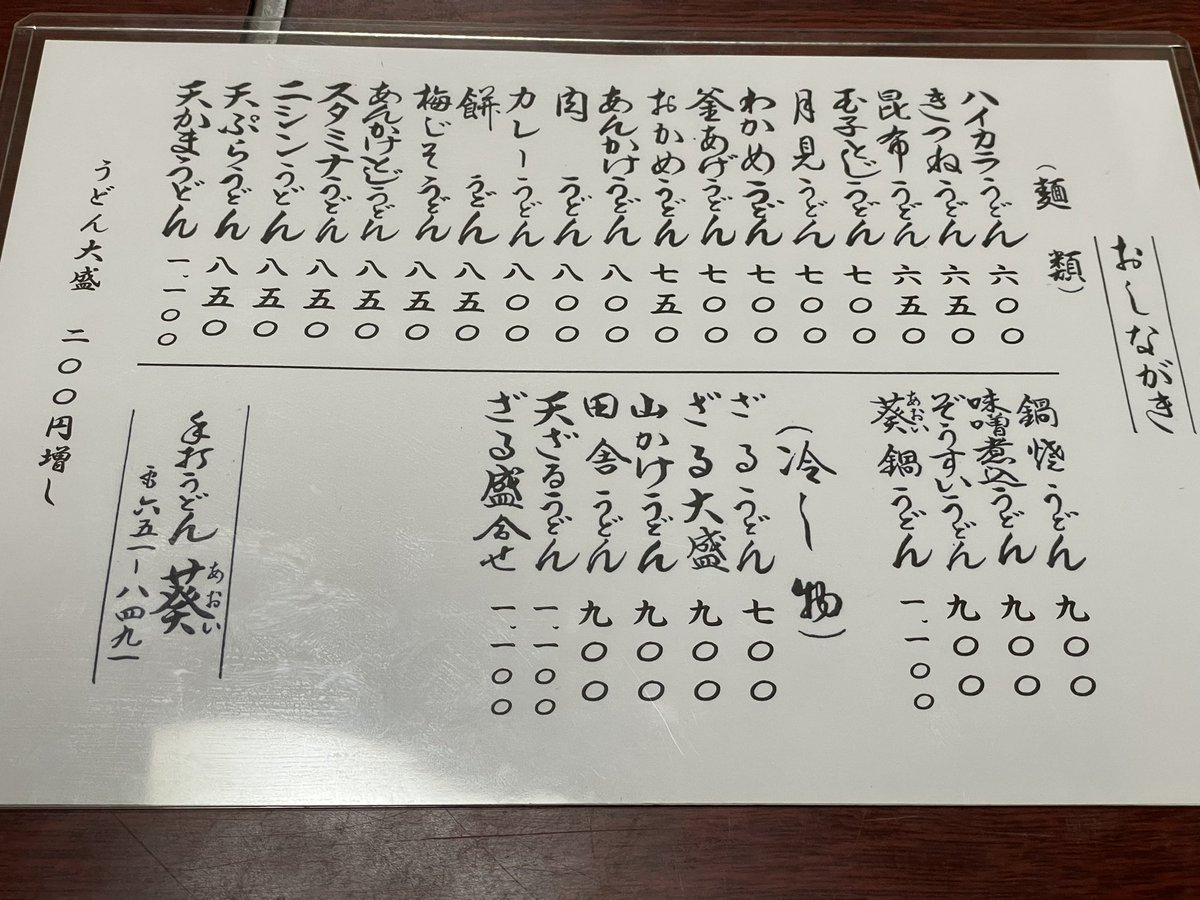 おしながき
(麺類)
ハイカラうどん 六〇〇
きつねうどん 六五〇
昆布うどん 六五〇
玉子とじうどん 七〇〇
月見うどん 七〇〇
わかめうどん 七〇〇
釜あげうどん 七〇〇
おかめうどん 七五〇
あんかけうどん 八〇〇
肉うどん 八〇〇
カレーうどん 八〇〇
餅うどん 八五〇
梅じそうどん 八五〇
あんかけとじうどん 八五〇
スタミナうどん 八五〇
ニシンうどん 八五〇
天ぷらうどん 八五〇
天かまうどん 一、一〇〇
うどん大盛 二〇〇円増し
鍋焼うどん 九〇〇
味噌煮込うどん 九〇〇
ぞうすいうどん 九〇〇
葵鍋うどん 一、一〇〇
あおい
(冷し物)
ざるうどん 七〇〇
ざる大盛 九〇〇
山かけうどん 九〇〇
田舎うどん 九〇〇
天ざるうどん 一、一〇〇
ざる盛合せ 一、一〇〇
手打うどん 葵
あおい
六五一ー八四九一